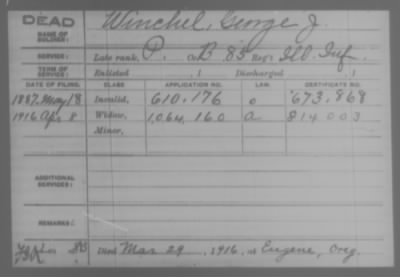 DEAD
NAME OF SOLDIER:
Winchel, George J.
SERVICE:
Late rank, P. Co. B, 83 Reg't Ill. Inf.
TERM OF SERVICE:
Enlisted , 1 Discharged , 1
DATE OF FILING. CLASS APPLICATION NO. LAW CERTIFICATE NO.
1887, May 18 Invalid, 610,176 673,868
1916 Apr 8 Widow, 1,064,160 a 814003
Minor,
ADDITIONAL SERVICES:
REMARKS:
Died Mar 29, 1916, at Eugene, Oreg.